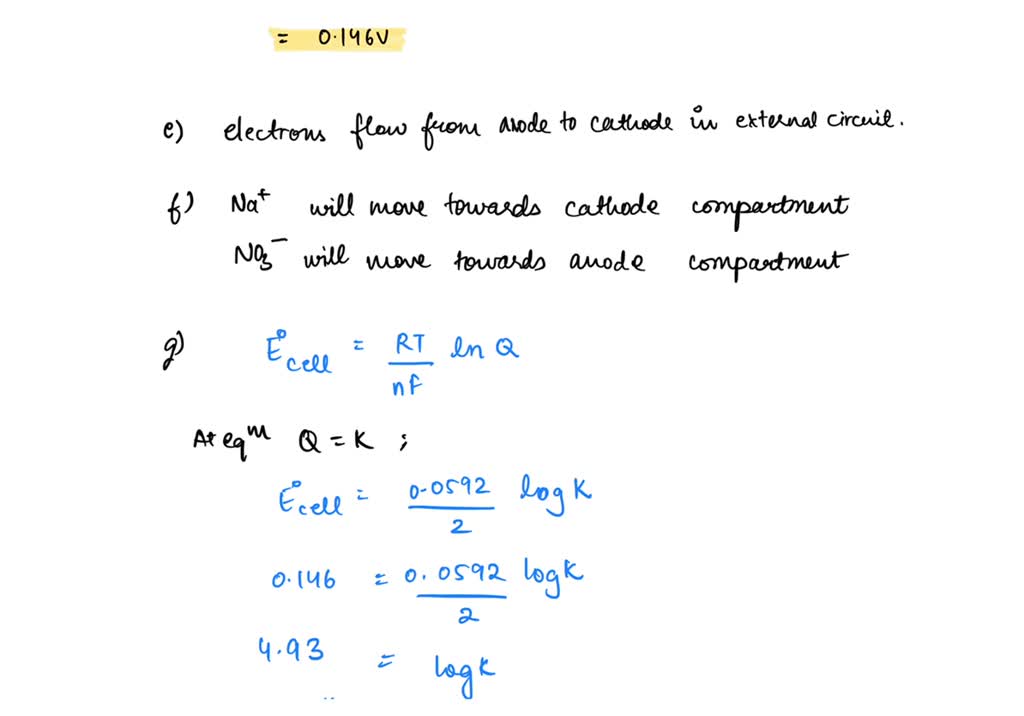 = 0.146V
e) electrons flow from anode to cathode in external circuit.
f) Na⁺ will move towards cathode compartment
NO₃⁻ will move towards anode compartment
g) E°cell = RT/nF ln Q
At eqᵐ Q = K ;
E°cell = 0.0592/2 log K
0.146 = 0.0592/2 log K
4.93 = log K